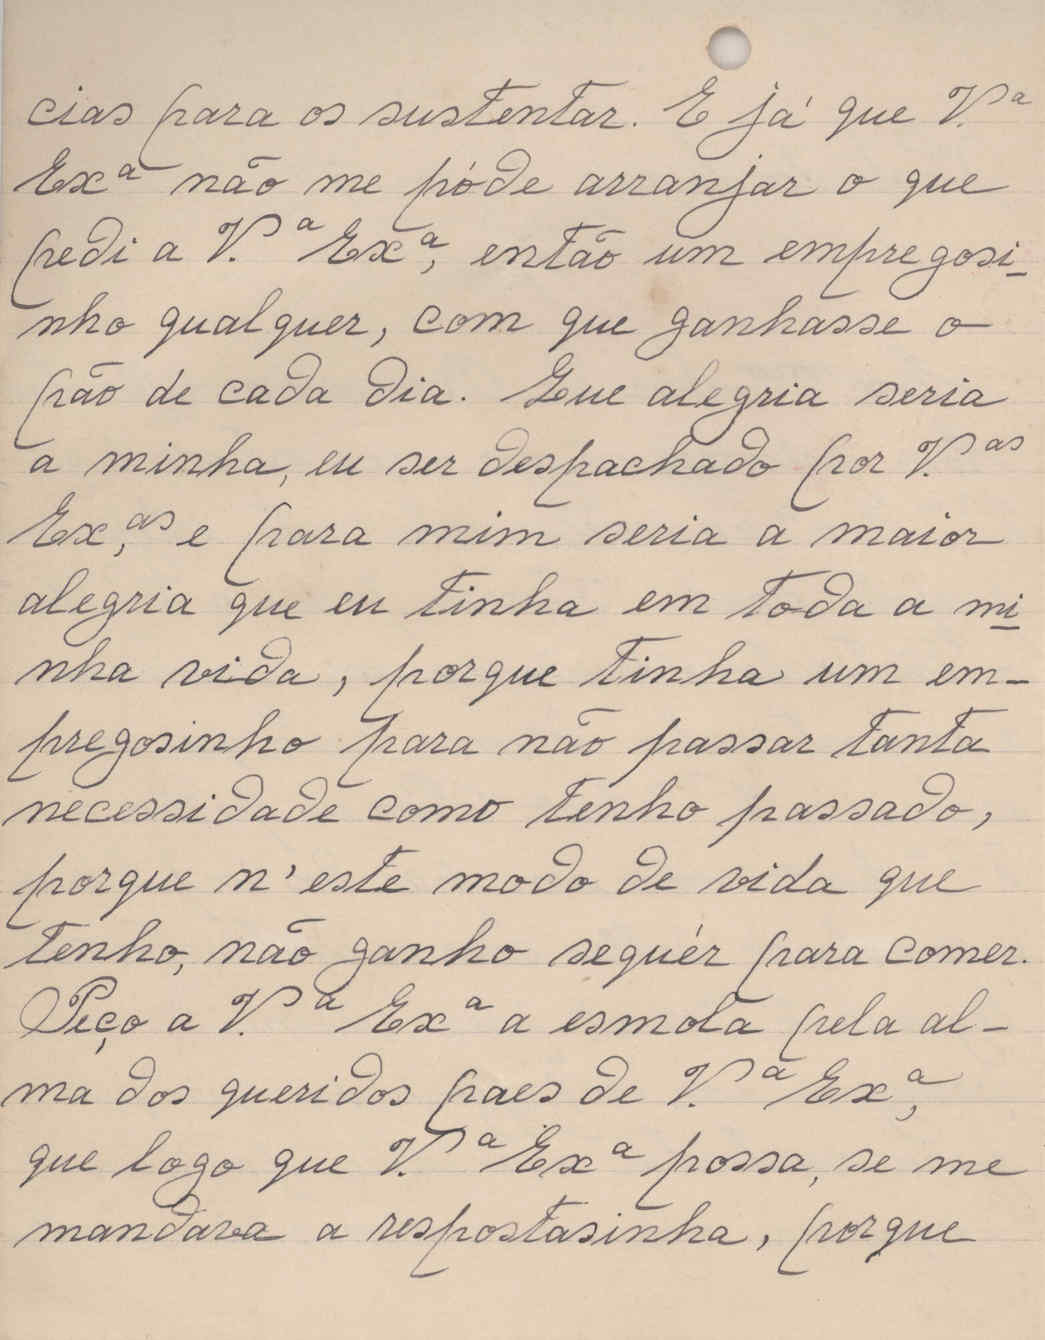 cias para os sustentar. E já que V.ª
Exª não me póde arranjar o que
pedi a V.ª Exª, então um empregosi-
nho qualquer, com que ganhasse o
pão de cada dia. Que alegria seria
a minha, eu ser despachado por V.as
Ex,as e para mim seria a maior
alegria que eu tinha em toda a mi-
nha vida, porque tinha um em-
pregosinho para não passar tanta
necessidade como tenho passado,
porque n'este modo de vida que
tenho, não ganho sequér para comer.
Peço a V.ª Exª a esmola pela al-
ma dos queridos paes de V.ª Exª,
que logo que V.ª Exª possa, se me
mandava a respostasinha, porque